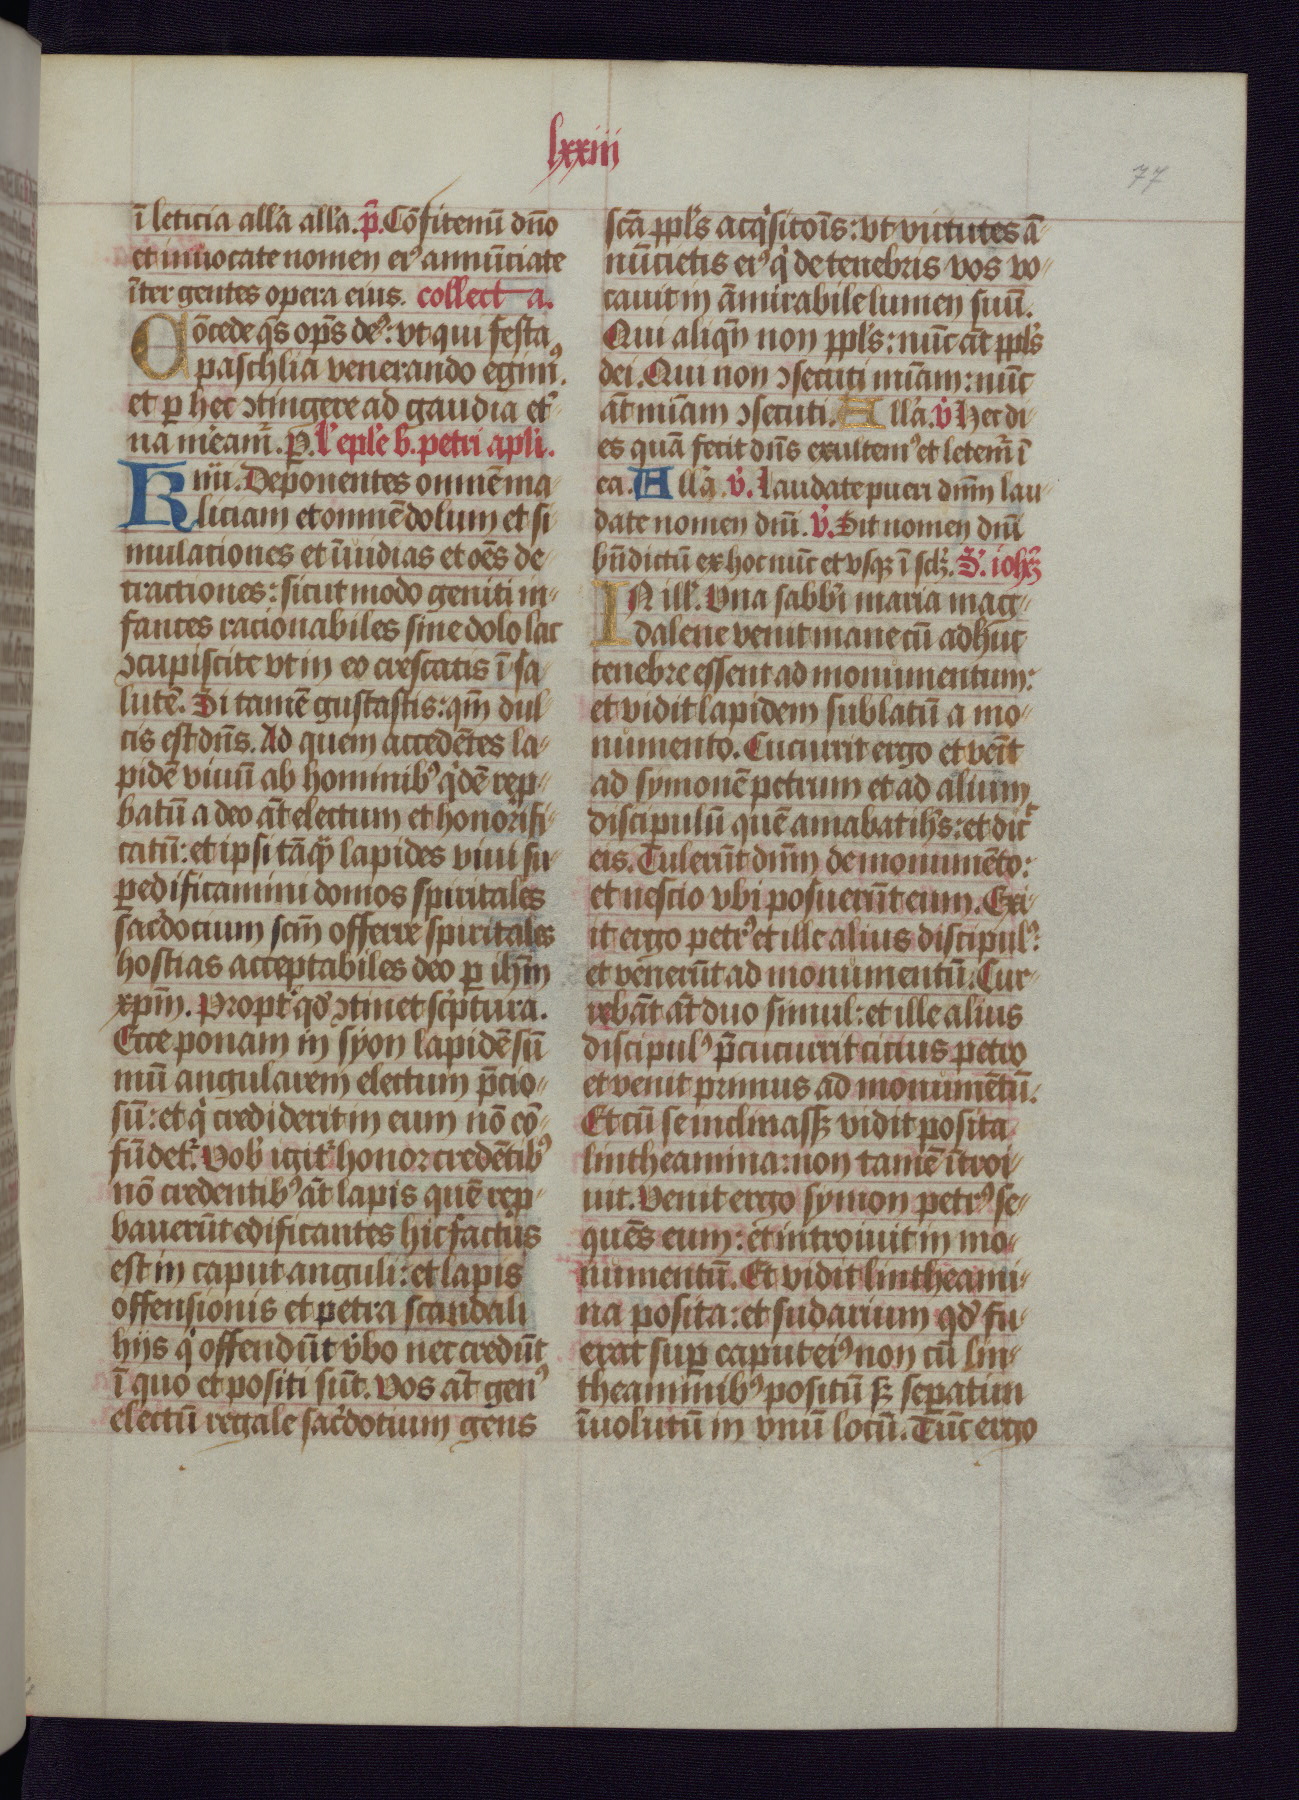 lxxiii
77
ī leticia all'a all'a. p̄. Cōfitemī dn̄o
et inuocate nomen ei᷒ annūciate
īter gentes opera eius. collecta.
Cōcede q̄s op̄s de᷒: vt qui festa
paschlia venerando egim᷒.
et per hec ꝯtingere ad gaudia et'
na meam̄. P. l' ep̄le b. petri apl'i.
Kr̄mi. Deponentes omnē ma
liciam et omnē dolum et si
mulationes et īuidias et oēs de
tractiones: sicut modo geniti in
fantes racionabiles sine dolo lac
ꝯcupiscite vt in eo crescatis ī sa
lutē. Si tamē gustastis: qm̄ dul
cis est dn̄s. Ad quem accedētes la
pidē viuū ab hominib᷒ qͥdē rep
batū a deo āt electum et honorifi
catū: et ipsi tāqͣ lapides viui su
ꝑedificamini domos spiritales
sac̄dotium scm̄ offerre spiritales
hostias acceptabiles deo ꝑ ihm̄
xpm̄. Propt' qd' ꝯtinet sc'ptura.
Ecce ponam in syon lapidē sū
mū angularem electum p̄cio
sū: et qͥ crediderit in eum nō cō
fūdet᷑. Vob' igit᷑ honor credētib᷒
nō credentib᷒ āt lapis quē rep
bauerūt edificantes hic factus
est in caput anguli: et lapis
offensionis et petra scandali
hiis qͥ offendūt v̓bo nec credūt
ī quo et positi sūt. Vos āt gen᷒
electū regale sac̄dotium gens
scā ppl's acqͥsitōis: vt virtutes ā
nūcietis ei᷒ qͥ de tenebris vos vo
cauit in āmirabile lumen suū.
Qui aliqn̄ non ppl's: nūc āt ppl's
dei. Qui non ꝯsecuti mīam: nūc
āt mīam ꝯsecuti. All'a. v̓ Hec di
es quā fecit dn̄s exultem᷒ et letem᷑ ī
ea. All'a. v̓. Laudate pueri dn̄m lau
date nomen dn̄i. v̓. Sit nomen dn̄i
bn̄dictū ex hoc nūc et vsqꝫ ī sclꝫ. S'. ioh'ꝫ
IN ill'. Vna sabb'i maria mag
dalene venit mane cū adhuc
tenebre essent ad monumentum:
et vidit lapidem sublatū a mo
numento. Cucurrit ergo et venīt
ad symonē petrum et ad alium
discipulū quē amabat ih's: et dic̄
eis. Tulerūt dn̄m de monumēto:
et nescio vbi posuerūt eum. Exi
it ergo petr᷒ et ille alius discipul᷒:
et venerūt ad monumentū. Cur
rebāt āt duo simul: et ille alius
discipul᷒ p̄cucurrit citius petro
et venit primus ad monumētū.
Et cū se inclinassꝫ vidit posita
lintheamina: non tamē ītroi
uit. Venit ergo symon petr᷒ se
quēs eum: et introiuit in mo
numentū. Et vidit lintheami
na posita: et sudarium qd' fu
erat suꝑ caput ei᷒ non cū lin
theaminib᷒ positū sꝫ sepatim
īuolutū in vnū locū. Tūc ergo